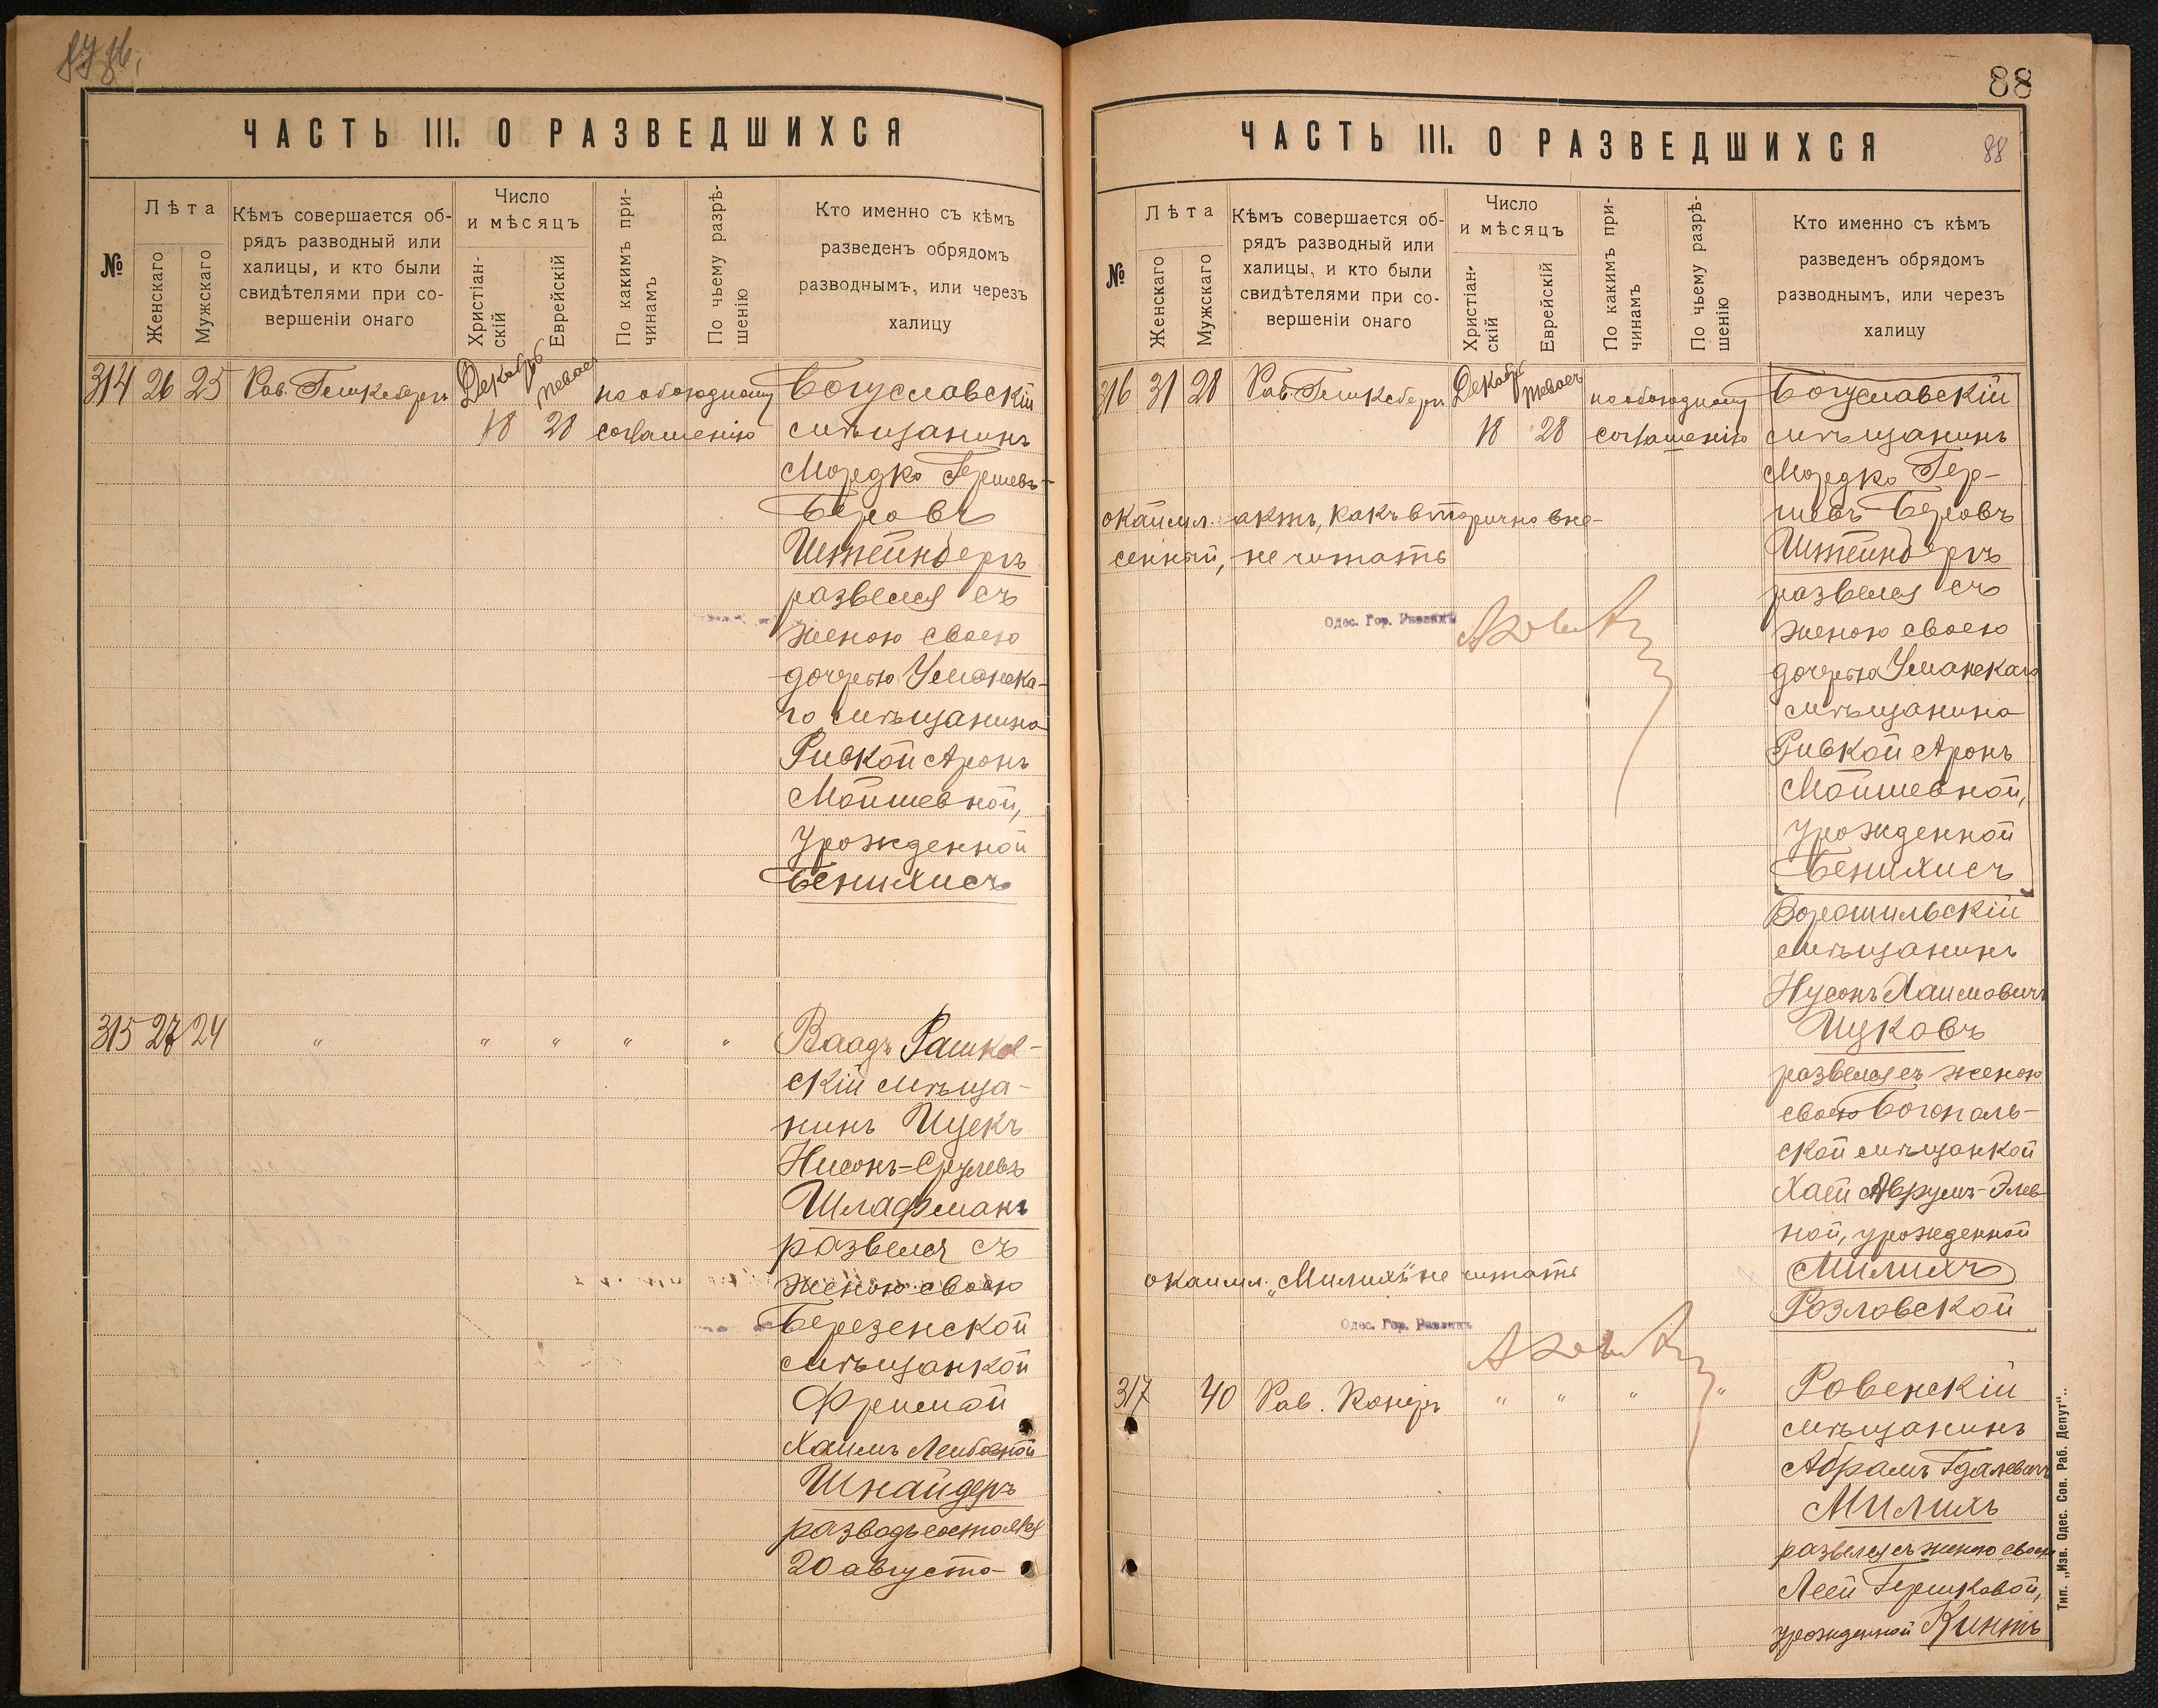 ЧАСТЬ III. О РАЗВЕДШИХСЯ
№
Лѣта
Женскаго
Мужскаго
Кѣмъ совершается об-
рядъ разводный или
халицы, и кто были
свидѣтелями при со-
вершеніи онаго
Число
и мѣсяцъ
Христіан-
скій
Еврейскій
По какимъ при-
чинамъ
По чьему разрѣ-
шенію
Кто именно съ кѣмъ
разведенъ обрядомъ
разводнымъ, или черезъ
халицу
314 26 25 Рав. Декабрь 18 28 по обоюдному
соглашенію
Богуславскій
мѣщанинъ
Мордко Гершевъ-
Беровъ
Штейнбергъ
развелся съ
женою своею
дочерью Уманска-
го мѣщанина
Ривкой Аронъ
Мойшевной,
урожденной
Бенилисъ
315 27 24 " " " " "
Ваадъ Рашков-
скій мѣща-
нинъ Ицекъ
Нисонъ-Срулевъ
Шлафманъ
развелся съ
женою своею
Березенской
мѣщанкой
Фреймой
Хаимъ Лейбовной
Шнайдеръ
разводъ состоялся
20 августа
88
ЧАСТЬ III. О РАЗВЕДШИХСЯ
88
№
Лѣта
Женскаго
Мужскаго
Кѣмъ совершается об-
рядъ разводный или
халицы, и кто были
свидѣтелями при со-
вершеніи онаго
Число
и мѣсяцъ
Христіан-
скій
Еврейскій
По какимъ при-
чинамъ
По чьему разрѣ-
шенію
Кто именно съ кѣмъ
разведенъ обрядомъ
разводнымъ, или черезъ
халицу
316 31 28 Рав. Декабрь 18 28 по обоюдному
соглашенію
Богуславскій
мѣщанинъ
Мордко Гер-
шевъ Беровъ
Штейнбергъ
развелся съ
женою своею
дочерью Уманскаго
мѣщанина
Ривкой Аронъ
Мойшевной,
урожденной
Бенилисъ
окаймл. актъ, какъ вторично вне-
сенный, не читать
Одес. Гор. Раввинъ
Ворошильскій
мѣщанинъ
Нусонъ Хаимовичъ
Цуковъ
развелся съ женою
своею Богополь-
ской мѣщанкой
Хаей Аврумъ-Элев-
ной, урожденной
Милихъ
Розловской
окаймл. „Милихъ" не читать
Одес. Гор. Раввинъ
317 40 Рав. " " " "
Ровенскій
мѣщанинъ
Абрамъ Гдалевичъ
Милихъ
развелся съ женою своею
Леей Гершковой,
урожденной Кинтъ
Тип. „Изв. Одес. Сов. Раб. Депут".